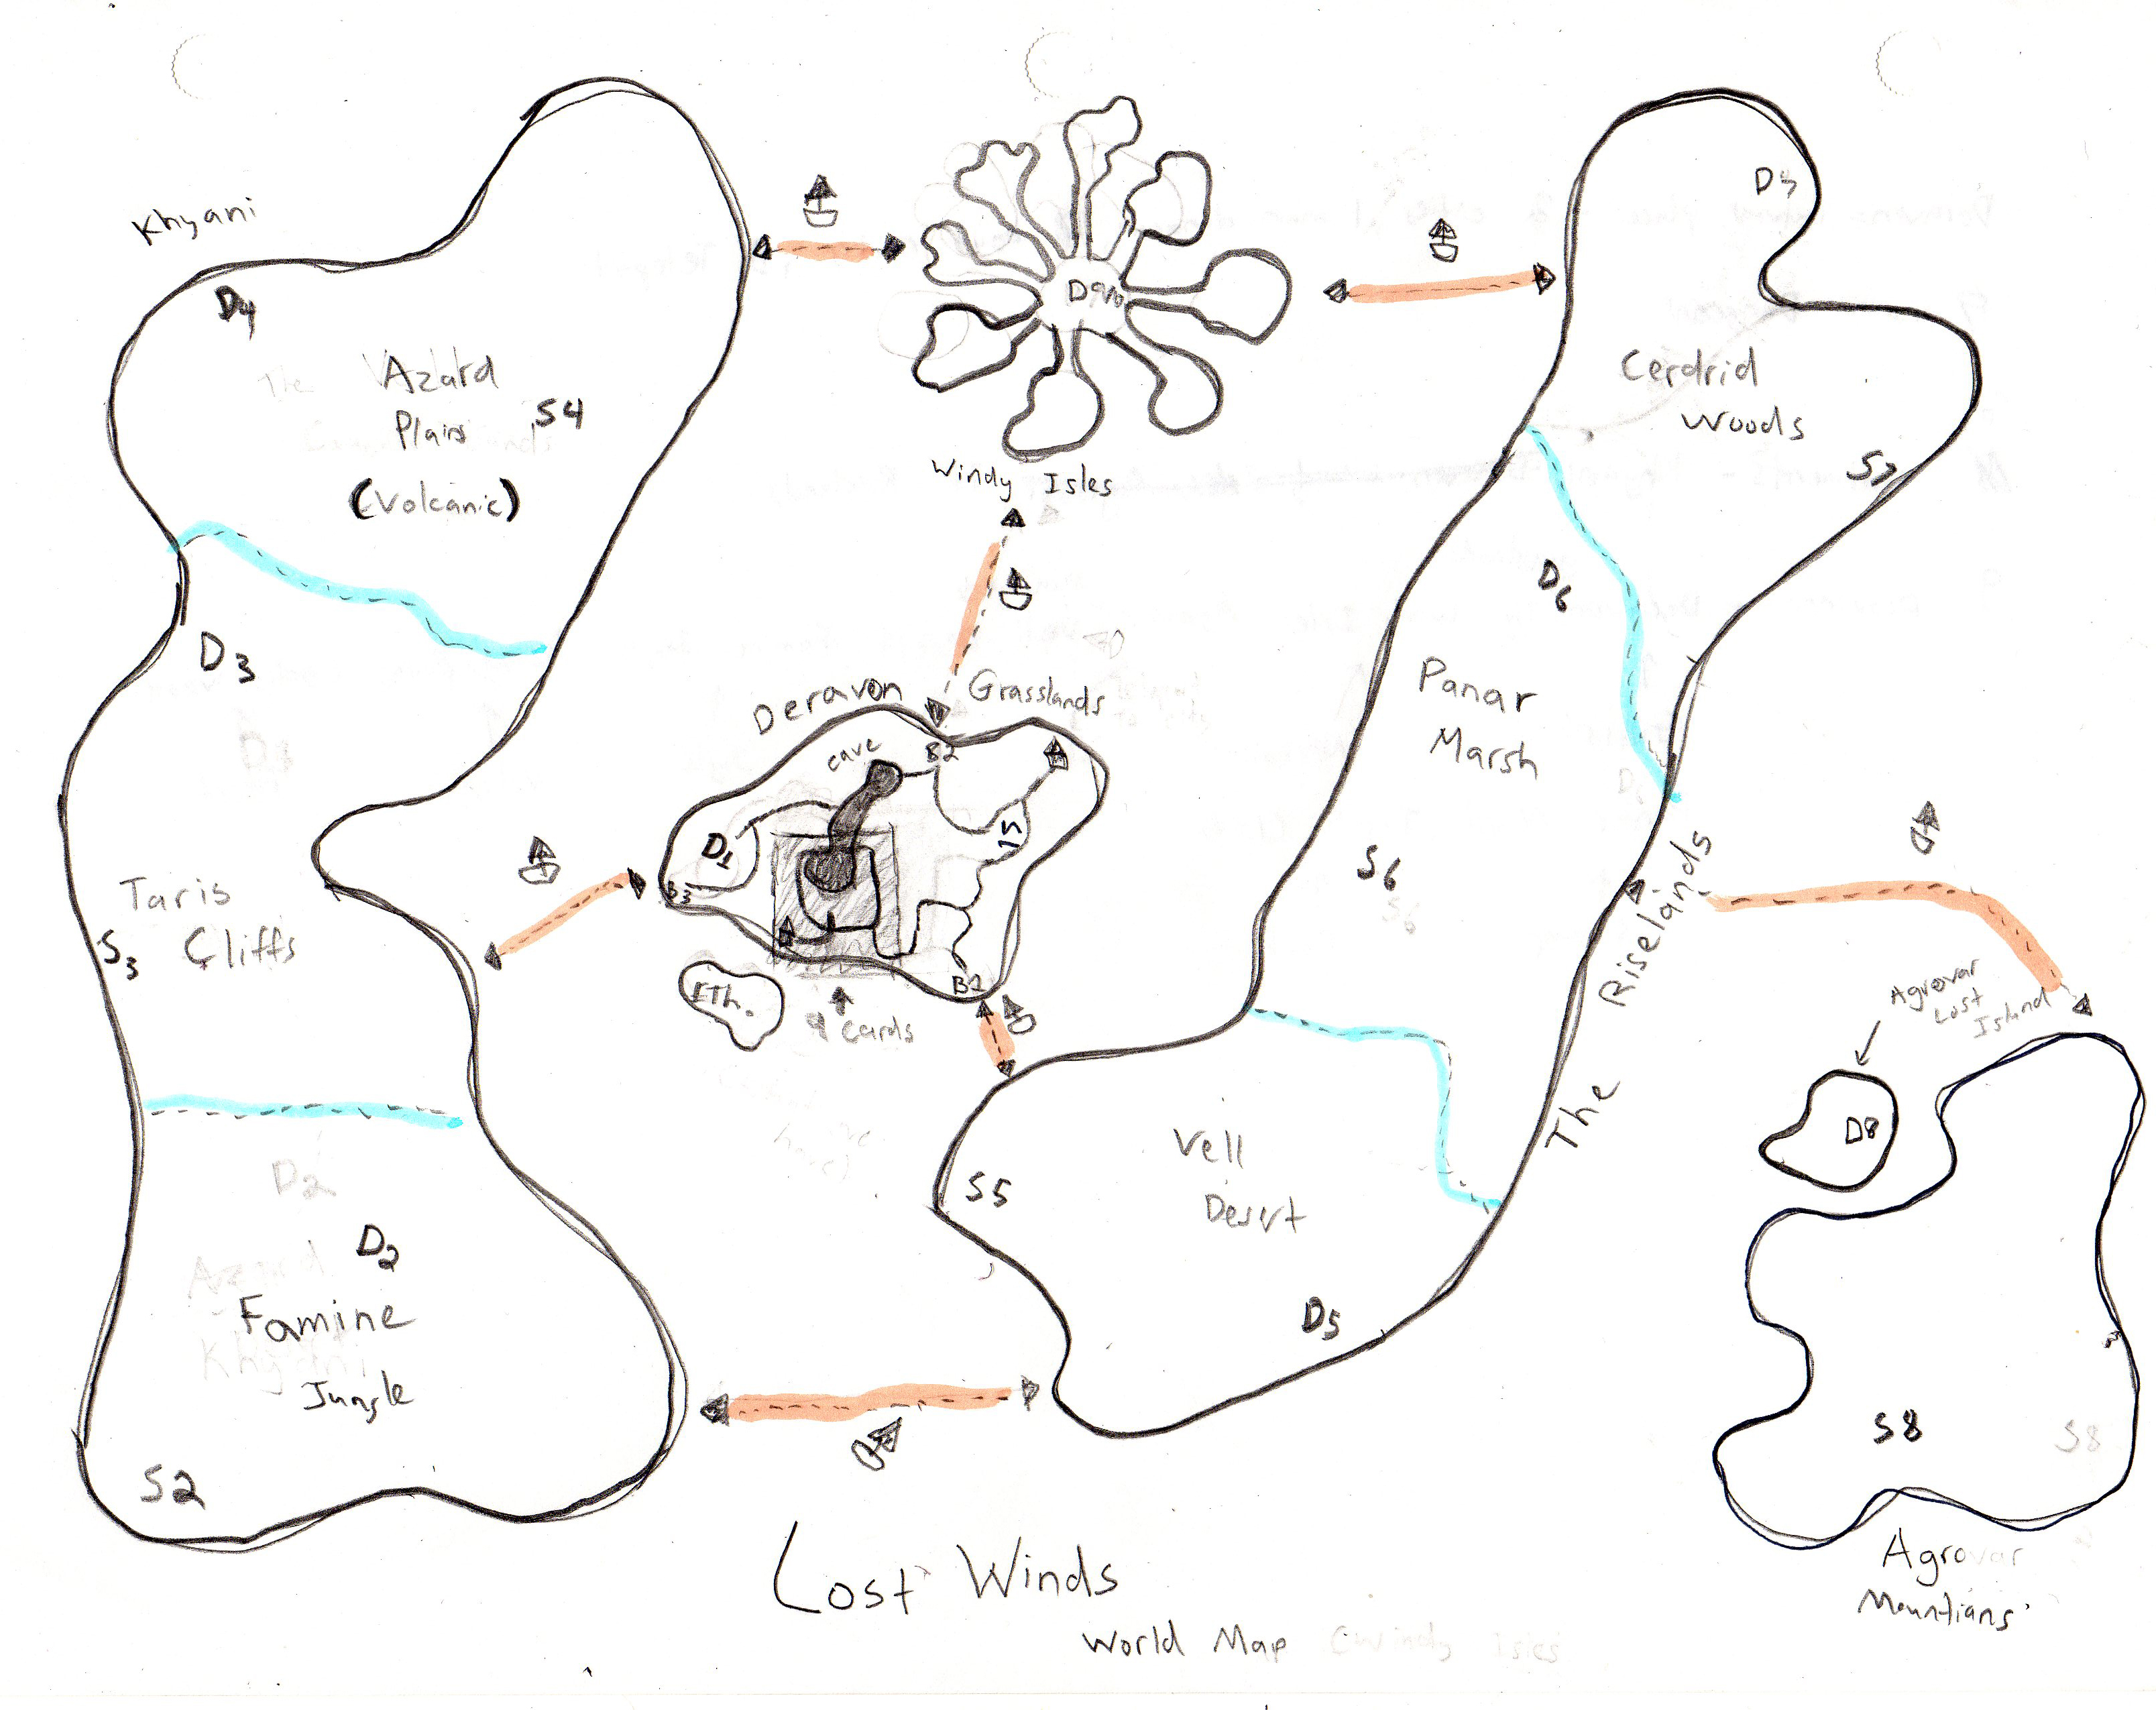 Khyani
D4
Azard
Plains
S4
(Volcanic)
D3
Taris
S3
Cliffs
D2
D2
Famine
Jungle
S2
Windy Isles
Deravon
Grasslands
cave
B2
D1
B3
S1
B1
ETh.
9 Cards
Cerdrid
Woods
S7
D6
Panar
Marsh
S6
S6
The Riselands
Vell
Desert
S5
D5
Agrovar
Lost
Island
D8
S8
S8
Agrovar
Mountians
Lost Winds
World Map
Windy Isles